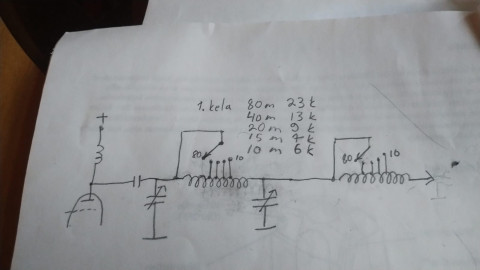 1. kela 80 m 23 k
40 m 13 k
20 m 9 k
15 m 7 k
10 m 6 k
+
80 10
80 10